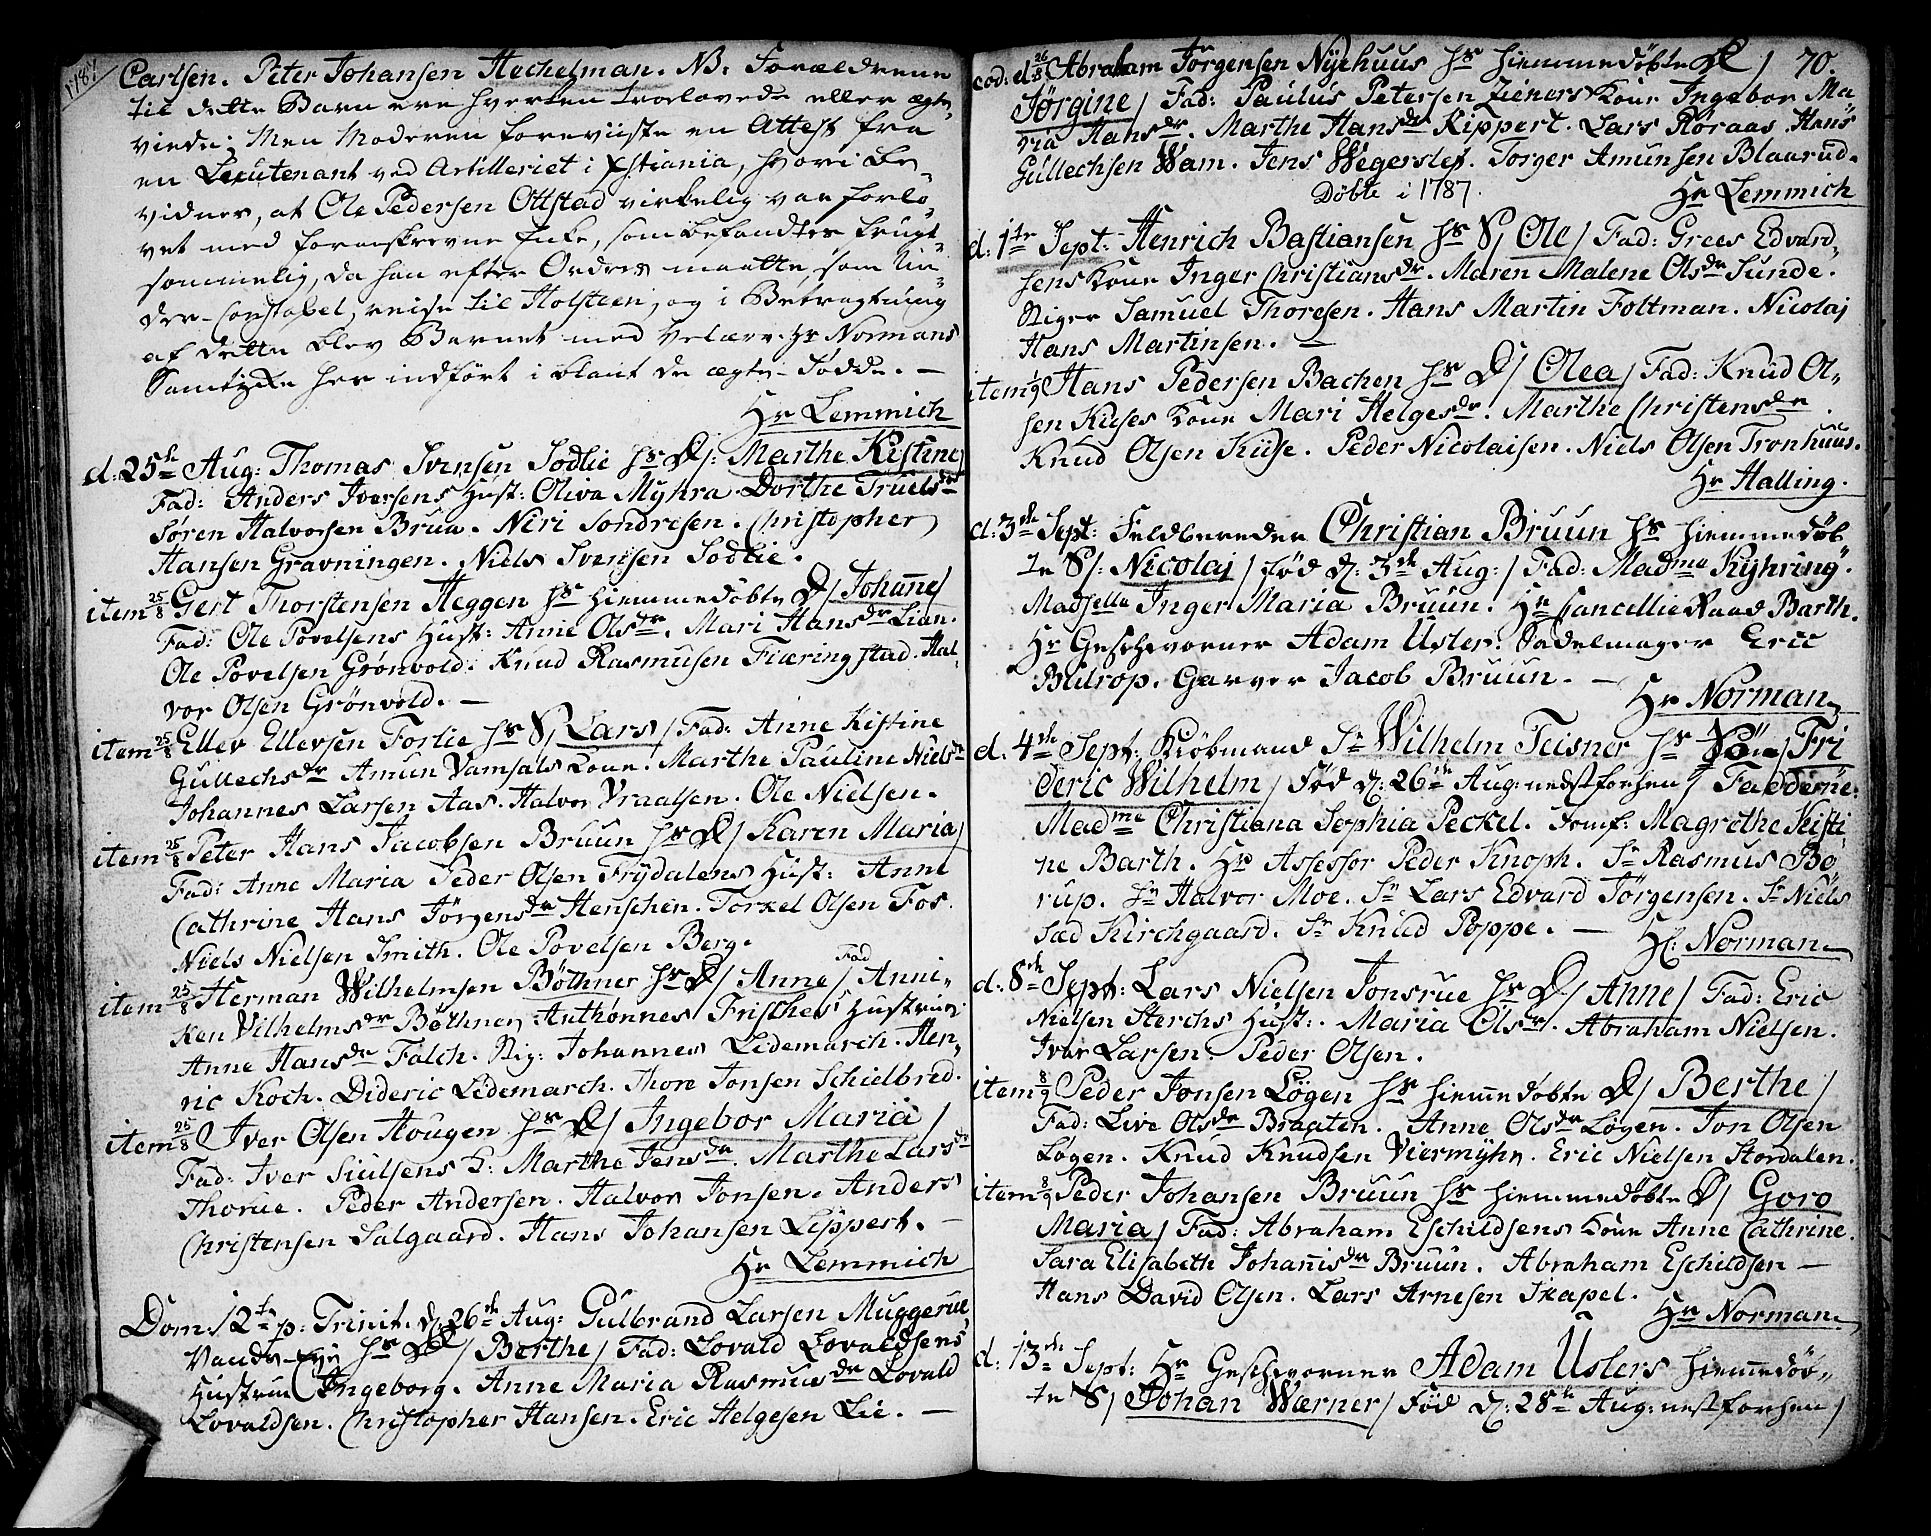 1787
Carlsen. Peter Johansen Hechelman. NB. Forældrene
til dette Barn ere hverken trolovede eller ægte
viede; Men Moderen foreviiste en Attest fra
en Lieutenant ved Artilleriet i Xstiania, hvori be
vidnes, at Ole Pedersen Ottstad virkelig var forlo¨
vet med foranskrevne Enke, som befandtes frugt¨
sommelig, da han efter Ordres maatte, som Un¨
der-Constapel, reise til Holsteen, og i Betragtning
af dette blev Barnet med Velærv. Hr Normans
Samtykke her indført i blant de ægte-Fødde. —
Hr Lemmich
d: 25de Aug: Thomas Svensen Sodlie hs D/: Marthe Kistine/
Fad: Anders Iversens Hust: Oliva Myhra. Dorthe Truelsdr
Søren Halvorsen Bruu. Niri Sondresen. Christopher
Hansen Gravningen. Niels Svensen Sodlie.
item 25/8 Gert Thorstensen Heggen hs hiemmedøbte D/ Johanne/
Fad: Ole Povelsens Hust: Anne Olsdr. Mari Hansdr Lian.
Ole Povelsen Grønvold. Knud Rasmusen Fiæringstad. Hal¨
vor Olsen Grønvold. —
item 25/8 Eller Ellersen Forlie hs S/ Lars/ Fad: Anne Kistine
Gullechsdr Amun Vamsals Kone. Marthe Pauline Nielsdr
Johannes Larsen Aas. Halvor Vraalsen. Ole Nielsen.
item 25/8 Peter Hans Jacobsen Bruun hs D/ Karen Maria/
Fad: Anne Maria Peder Olsen Frydalens Hust: Anne
Cathrine Hans Jørgensdr Henschen. Torkel Olsen Fos.
Niels Nielsen Smith. Ole Povelsen Berg.
item 25/8 Herman Wilhelmsen Bøthner hs D/ Anne/ Fad Anni¨
ken Vilhelmsdr Bøthner Anthonnes Frisches Hustrue
Anne Hansdr Falch. Pig: Johannes Lidemarch. Hen¨
ric Koch. Dideric Lidemarch. Thore Jonsen Schielbred.
item 25/8 Iver Olsen Hougen hs D/ Ingebor Maria/
Fad: Iver Siulsens K: Marthe Jensdr. Marthe Larsdr
Thorue. Peder Andersen. Halvor Jonsen. Anders
Christensen Salgaard. Hans Johansen Lippert. —
Hr Lemmich
Dom: 12te p: Trinit. d. 26de Aug: Gulbrand Larsen Muggerud
Vands-Eye hs D/ Berthe/ Fad: Lovald Lovaldsens
Hustrue Ingeborg. Anne Maria Rasmusdr Lovald
Lovaldsen. Christopher Hansen. Eric Helgesen Lie. —
eod: d. 26/8 Abraham Jørgensen Nyehuus hs hiemmedøbte D/ 70.
Jørgine/ Fad: Paulus Petersen Zieners Kone Ingebor Ma¨
ria Hansdr. Marthe Hansdr Kippert. Lars Røraas Hans
Gullechsen Wam. Jens Wegerslef. Torger Amunsen Blaarud.
Døbte i 1787.
Hr Lemmich
d: 1te Sept: Henrich Bastiansen hs S/ Ole/ Fad: Grees Edvard¨
sens Kone Inger Christiansdr. Maren Malene Olsdr Sunde.
Piger Samuel Thoresen. Hans Martin Foltman. Nicolai
Hans Martinsen. —
item 1/9 Hans Pedersen Bachen hs D/ Olea/ Fad: Knud Ol¨
sen Kuses Kone Mari Helgesdr. Marthe Christensdr.
Knud Olsen Kuse. Peder Nicolaisen. Niels Olsen Tronhuus.
Hr Halling.
d: 3de Sept: Feldbereder Christian Bruun hs hiemmedøb
te S/: Nicolai/ fød d: 3de Aug:/ Fad: Madme Kyhring.
Madselle Inger Maria Bruun. Hr Cancellie Raad Barth.
Hr Geschworner Adam Usler. Sadelmager Eric
Butrop. Garver Jacob Bruun. —
Hr Norman
d. 4de Sept: Kiøbmand Sr Wilhelm Teisner hs Søn/ Fri
deric Wilhelm/ Fød d: 26de Aug: nedstforhen/ Fadderne:
Madme Christiana Sophia Peckel. Jomf: Magrethe Kisti
ne Barth. Hr Assessor Peder Knoph. Sr Rasmus Bø
rup. Sr Halvor Moe. Sr Lars Edvard Jørgensen. Sr Niels
Sæd Kirchgaard. Sr Knud Poppe. —
H: Norman
d. 8de Sept: Lars Nielsen Jonsrue hs D/ Anne/ Fad: Eric
Nielsen Sterchs Hust: Maria Olsdr. Abraham Nielsen.
Iver Larsen. Peder Olsen.
item 8/9 Peder Jonsen Løgen hs hiemedøbte D/ Berthe/
Fad: Live Olsdr Braaten. Anne Olsdr Løgen. Jon Olsen
Løgen. Knud Knudsen Viermyhr. Eric Nielsen Stordalen.
item 8/9 Peder Johansen Bruun hs hiemmedøbte D/ Goro
Maria/ Fad: Abraham Eschildsens Kone Anne Cathrine.
Sara Elisabeth Johannisdr Bruun. Abraham Eschildsen —
Hans David Olsen. Lars Arnesen Skapel.
Hr Norman
d: 13de Sept: Hr Geschworner Adam Uslers hiemmedøb¨
te S/ Johan Wærner/ Fød d: 28de Aug: nestforhen/